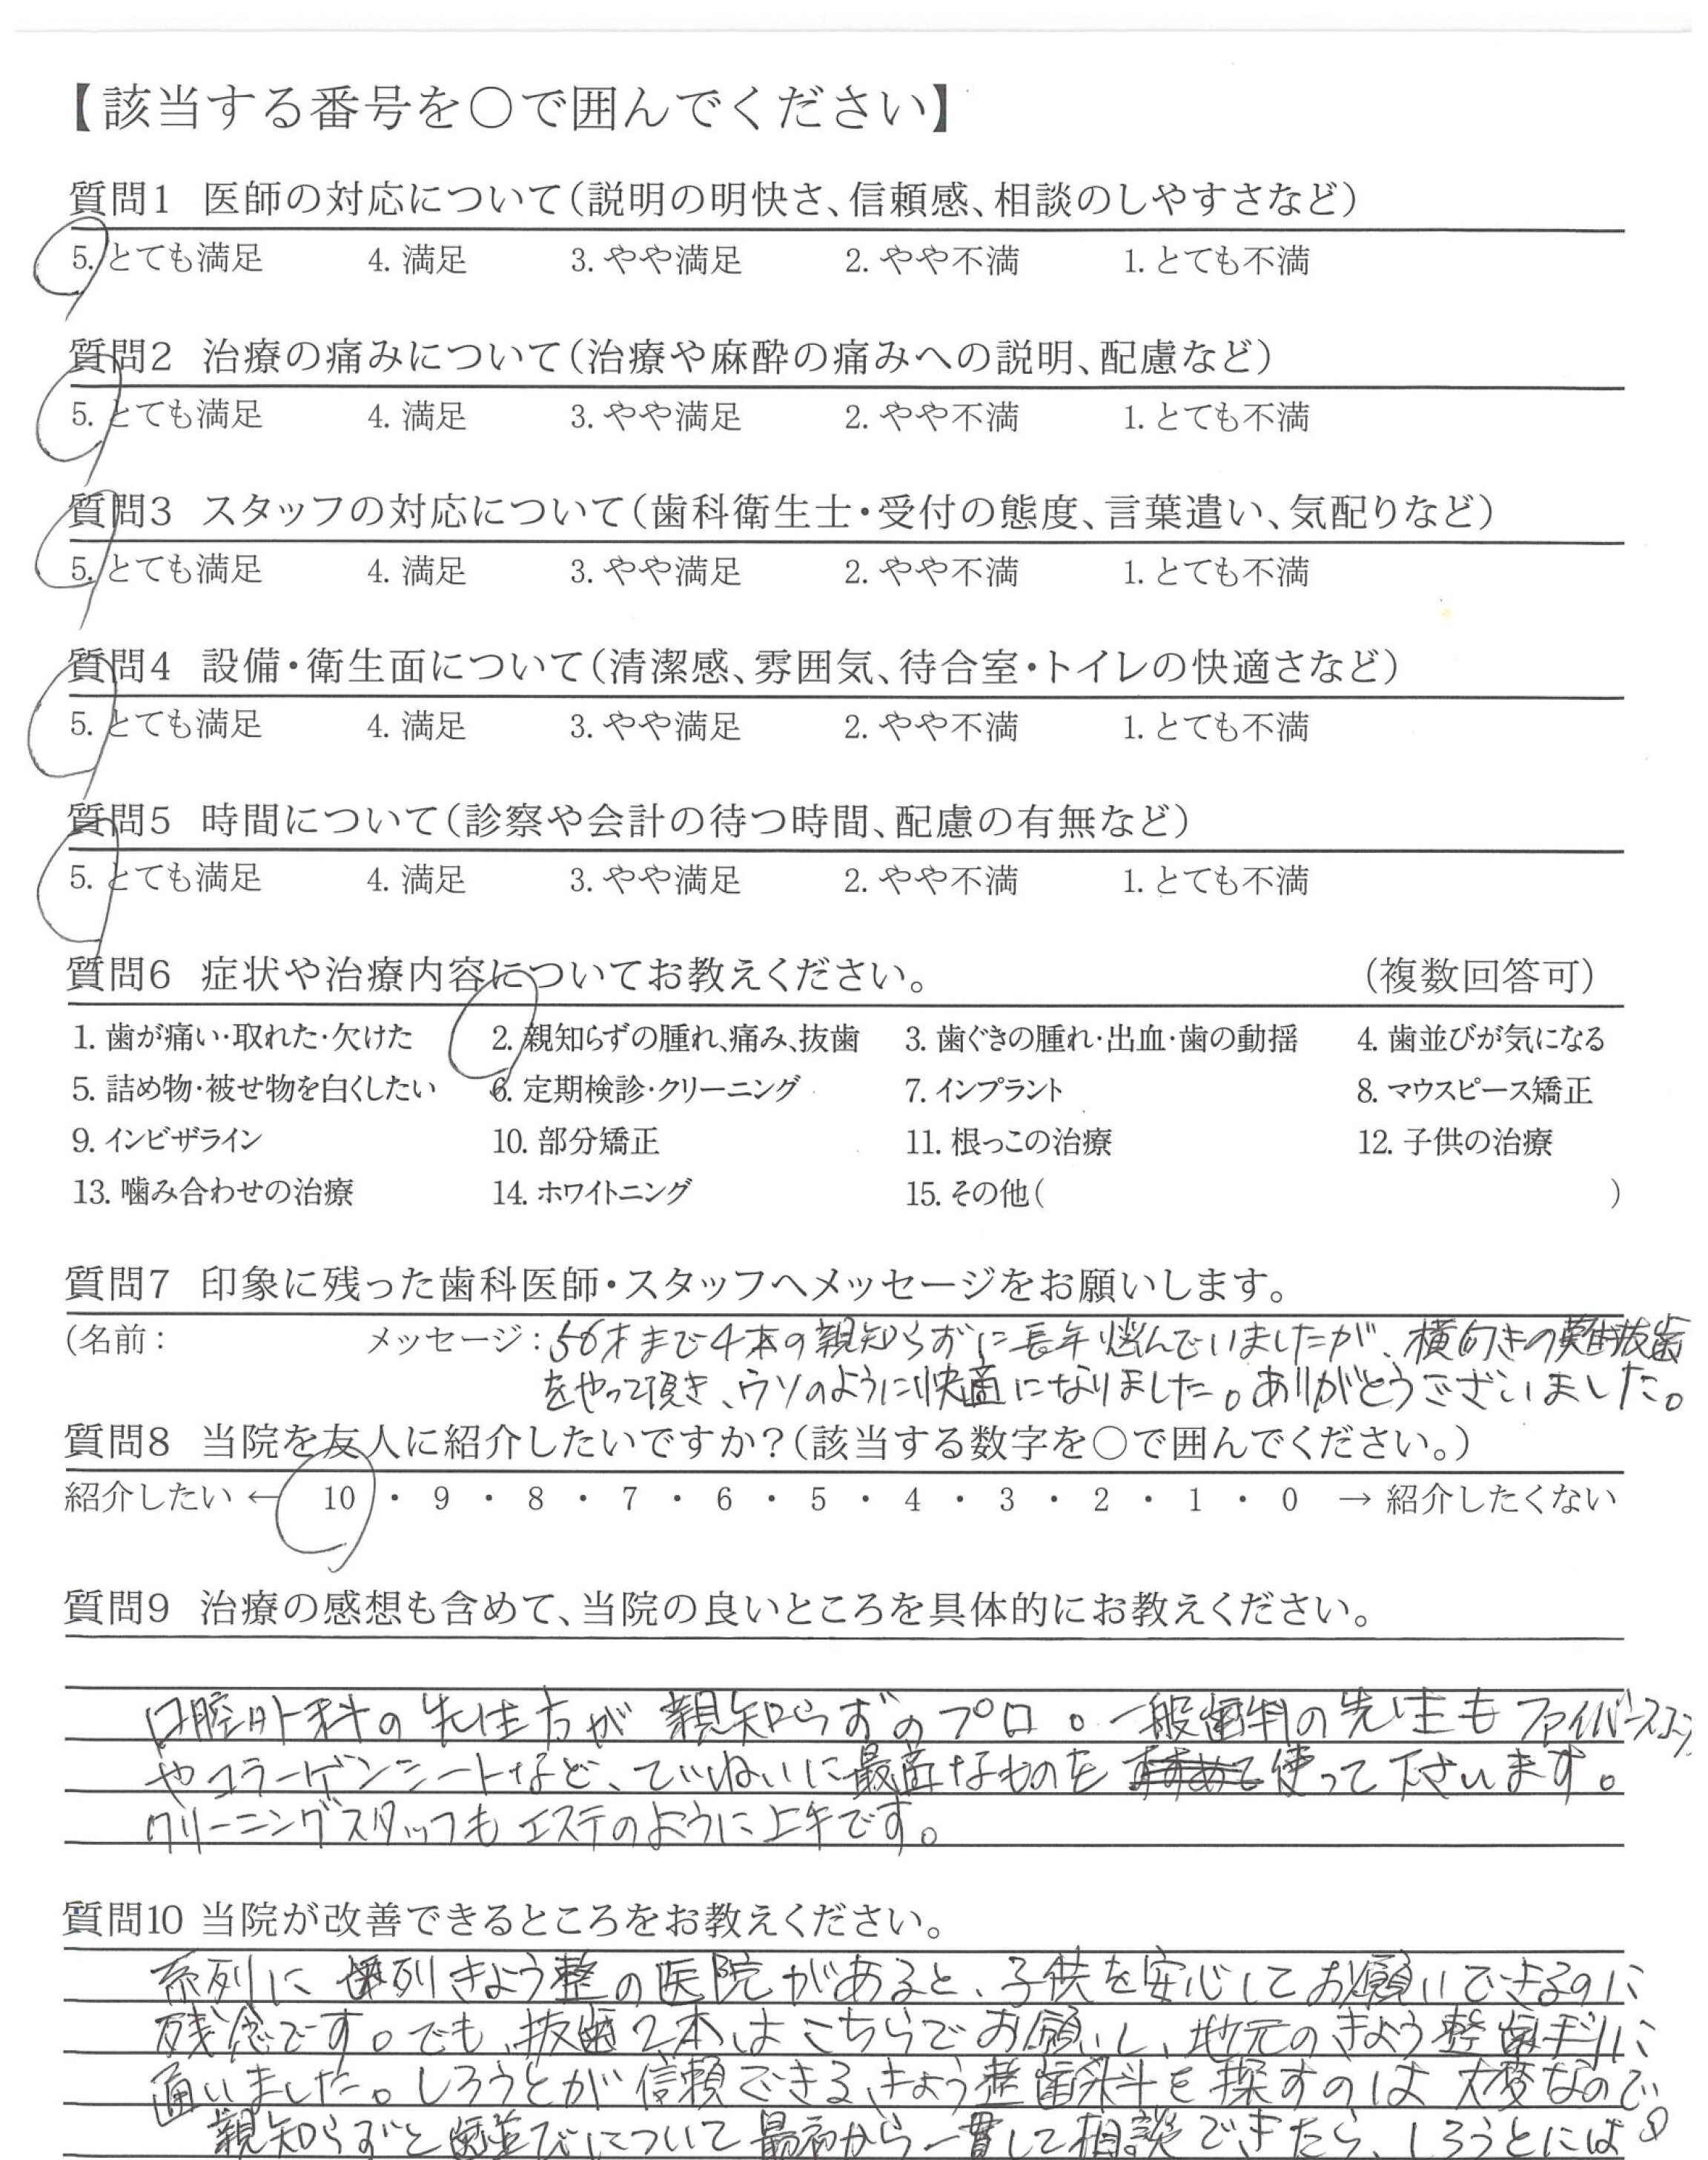 【該当する番号を○で囲んでください】
質問1 医師の対応について(説明の明快さ、信頼感、相談のしやすさなど)
5. とても満足 4. 満足 3. やや満足 2. やや不満 1. とても不満
質問2 治療の痛みについて(治療や麻酔の痛みへの説明、配慮など)
5. とても満足 4. 満足 3. やや満足 2. やや不満 1. とても不満
質問3 スタッフの対応について(歯科衛生士・受付の態度、言葉遣い、気配りなど)
5. とても満足 4. 満足 3. やや満足 2. やや不満 1. とても不満
質問4 設備・衛生面について(清潔感、雰囲気、待合室・トイレの快適さなど)
5. とても満足 4. 満足 3. やや満足 2. やや不満 1. とても不満
質問5 時間について(診察や会計の待つ時間、配慮の有無など)
5. とても満足 4. 満足 3. やや満足 2. やや不満 1. とても不満
質問6 症状や治療内容についてお教えください。 (複数回答可)
1. 歯が痛い・取れた・欠けた 2. 親知らずの腫れ、痛み、抜歯 3. 歯ぐきの腫れ・出血・歯の動揺 4. 歯並びが気になる
5. 詰め物・被せ物を白くしたい 6. 定期検診・クリーニング 7. インプラント 8. マウスピース矯正
9. インビザライン 10. 部分矯正 11. 根っこの治療 12. 子供の治療
13. 噛み合わせの治療 14. ホワイトニング 15. その他( )
質問7 印象に残った歯科医師・スタッフへメッセージをお願いします。
(名前: メッセージ:56才まで4本の親知らずに長年悩んでいましたが、横向きの難抜歯
をやって頂き、ウソのように快適になりました。ありがとうございました。
質問8 当院を友人に紹介したいですか?(該当する数字を○で囲んでください。)
紹介したい ← 10 ・ 9 ・ 8 ・ 7 ・ 6 ・ 5 ・ 4 ・ 3 ・ 2 ・ 1 ・ 0 → 紹介したくない
質問9 治療の感想も含めて、当院の良いところを具体的にお教えください。
口腔外科の先生方が親知らずのプロ。一般歯科の先生もファイバースコープ
やコラーゲンシートなど、ていねいに最適なものを使って下さいます。
クリーニングスタッフもエステのように上手です。
質問10 当院が改善できるところをお教えください。
系列に歯列きょう整の医院があると、子供を安心してお願いできるのに
残念です。でも、抜歯2本はこちらでお願いし、地元のきょう整歯科に
通いました。しろうとが信頼できるきょう整歯科を探すのは大変なので
親知らずと歯並びについて最初から一貫して相談できたら、しろうとには